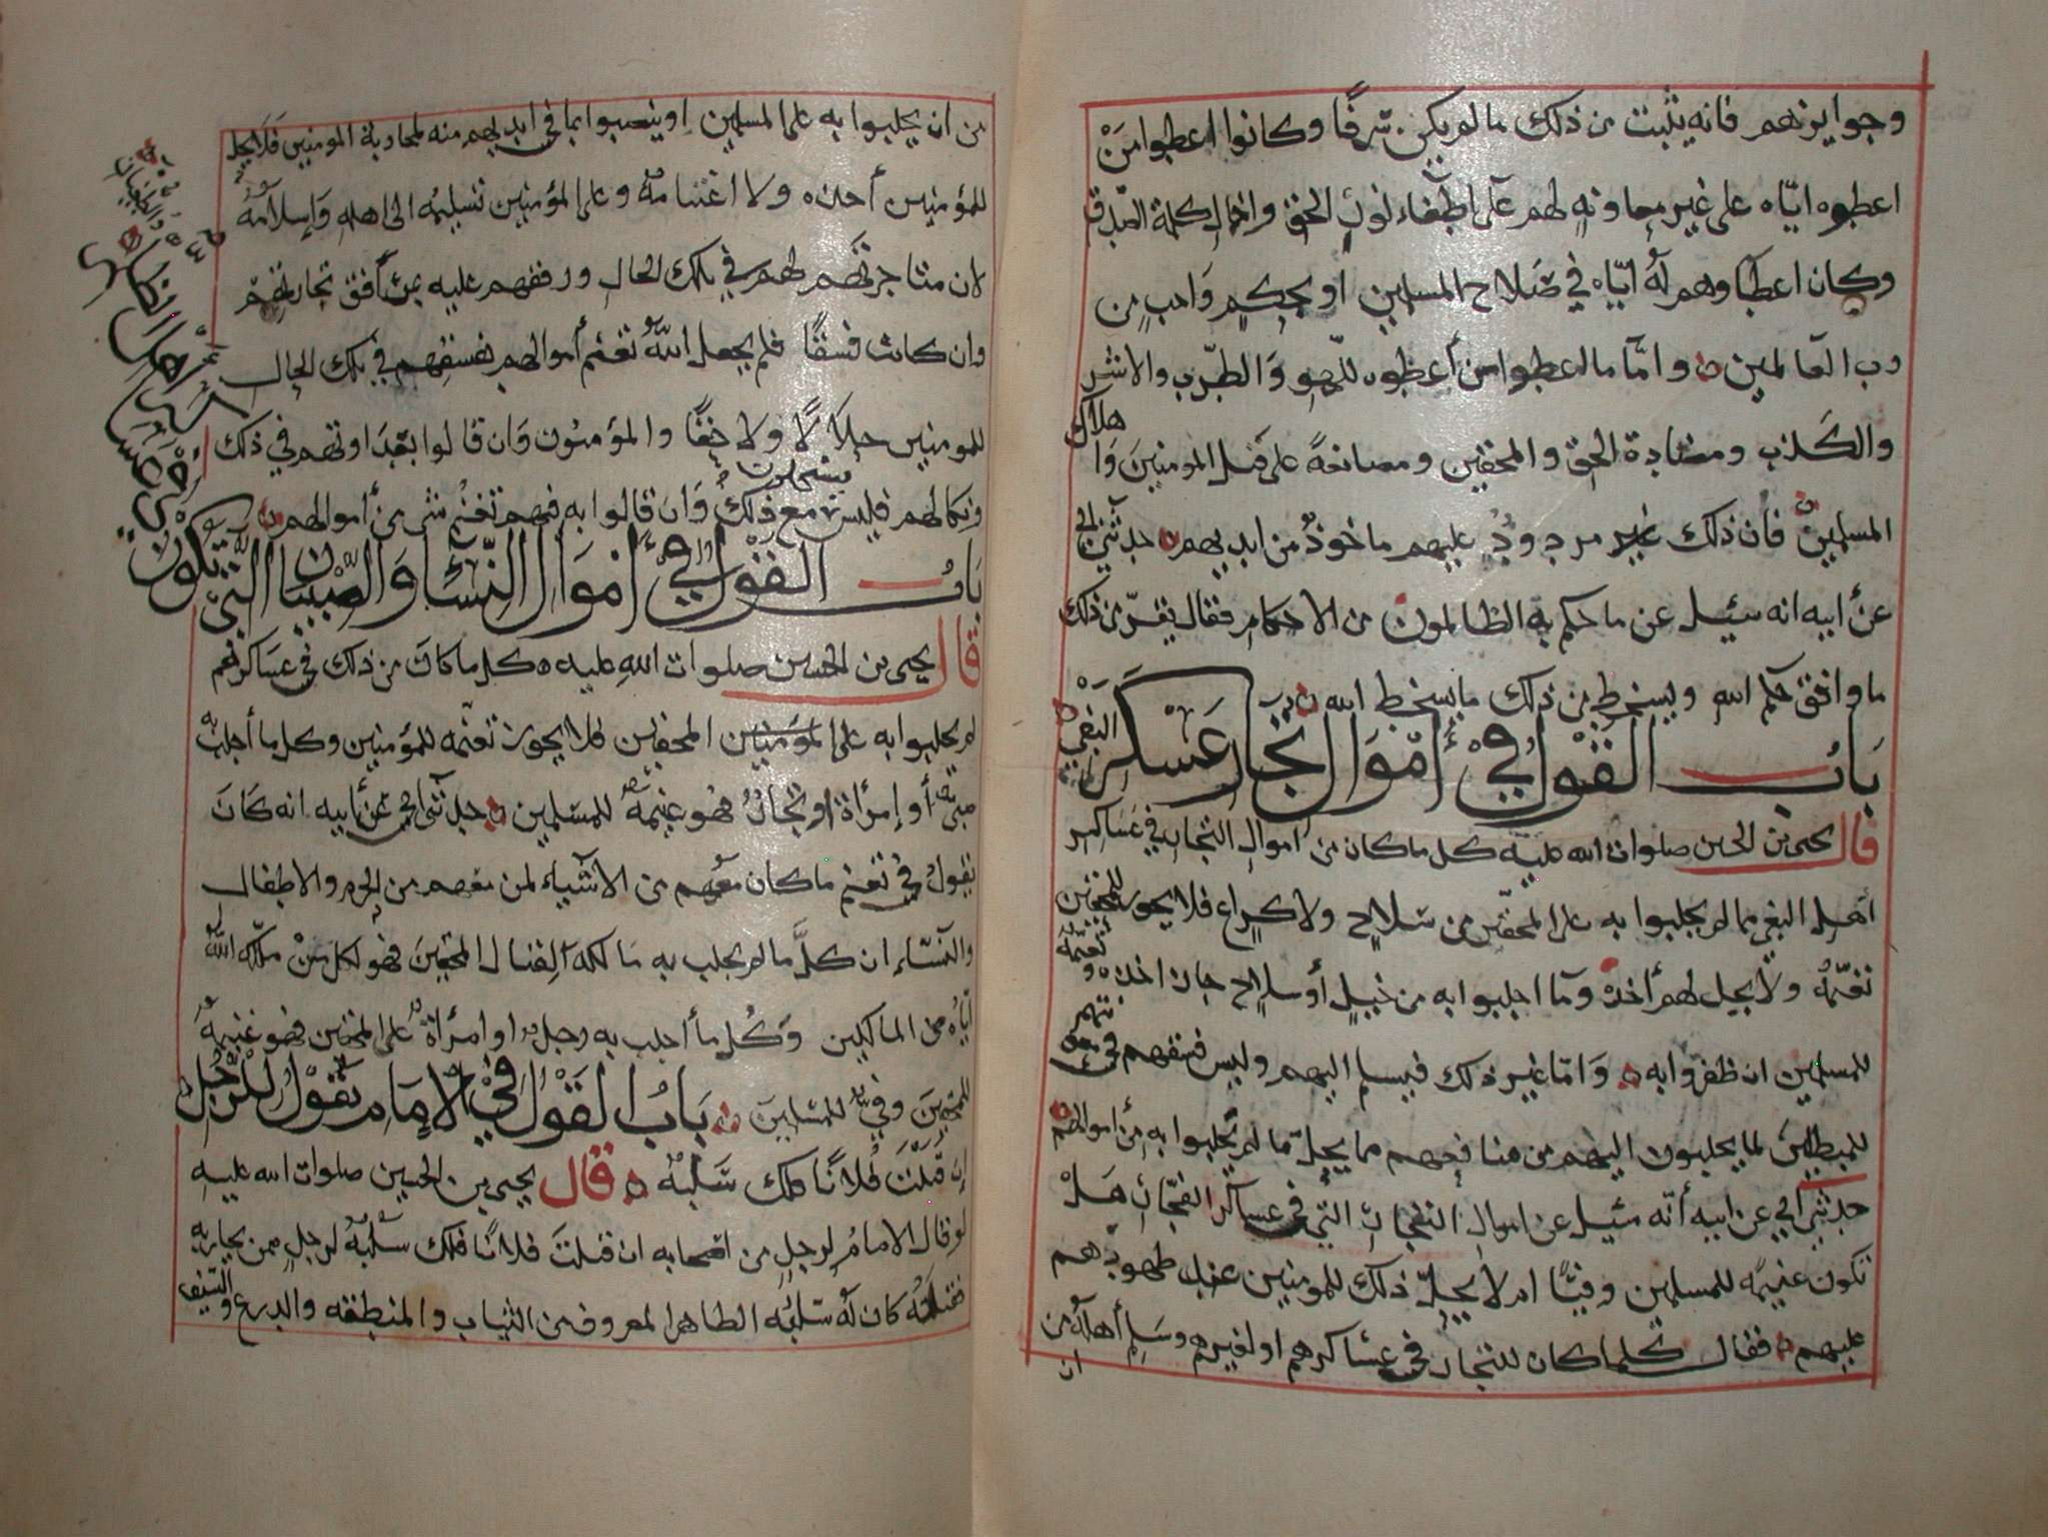 وجوايزهم فانه يثبت من ذلك ما لم يكن سرفًا وكانوا اعطوا مَنْ
اعطوه ايّاه على غير معاونةٍ لهم على اطفاء نور الحق واخمال كلمة الصدق
وكان اعطاوهم لهُ ايّاه في صَلاح المسلمين او بحكمٍ واجبٍ من
رب العالمين وامّا ما اعطوا من أعطوه للّهو وَالطرب والاشر
والكذب ومضادة الحق والمحقين ومصانعةً على قتل المومنينَ وَاهلاك
المسلمين فان ذلك غير مردودٌ عليهم ماخوذٌ من ايديهم حدثني ابي
عن ابيه انه سئيل عن ما حكم به الظالمون من الاحكام فقال يقرّ من ذلك
ما وافق حكم الله ويسخط من ذلك ما يسخط الله
بَابُ القول في أمْوَال تجّار عَسْكَر البَغْي
قال يحيى بن الحسين صلوات الله عليه كل ما كان من اموال التجار في عساكر
اهل البغي مما لم يجلبوا به على المحقين من سلاحٍ ولا كراع فلا يجوز للمحقين
تغنّمهُ ولا يحل لهم أخذه وَما اجلبوا به من خيلٍ أو سلاحٍ جاز اخذه وتغنمه
للمسلمين ان ظفروا به وَامّا غير ذلك فيسلم اليهم وليس فسقهم في معونتهم
للمبطلين لما يجلبون اليهم من منافعهم مما يحلّ ما لم يجلبوا به من أموالهم
حدثني أبي عن ابيه أنّه سئيل عن اموال التجارِ التي في عساكر الفجّار هَلْ
تكون غنيمه للمسلمين وفيًّا ام لا يحلّ ذلك للمومنين عند ظهورهم
عليهم فقال كلما كان للتجار في عساكرهم او لغيرهم وسلم أهله من
ان
من ان يجلبوا به على المسلمين او ينصبوا بما في ايديهم منه لمحاربة المومنين فلا يحل
للمؤمنين أخذه ولا اغتنامه وعلى المؤمنين تسليمه الى اهله وَإسلامهُ
لان متاجرتهم لهم في تلك الحال ورفقهم عليه من أفق تجارتهم
وان كانت فسقًا فلم يجعل اللهُ تغنم أموالهم بفسقهم في تلك الحال
للمومنين حلالًا ولا حقًا والمؤمنون وَان قالوا بعَداوتهم في ذلك
ونكالهم فليس مع ذلك وَان قالوا به فيهم تغنم شي من أموالهم
يستحلون
بَابُ القَوْل في أمْوَال النّسَا وَالصِّبْيَان التي تكون
في عسكر اهل
قال يحيى بن الحسين صلوات الله عليه كل ما كان من ذلك في عساكرهم
لم يجلبوا به على المومنين المحقين فلا يجوز تغنمه للمؤمنين وكل ما أجلب به
صبيٌّ أو إمرأة او تجار فهو غنيمةٌ للمسلمين حدثني أبي عن أبيه انه كان
يقول في تغنم ما كان معهم من الاشياء لمن معهم من الحرم والاطفال
والنسَاء ان كلَّ ما لم يجلب به مالكه لقتال المحقين فهو لكل مَنْ ملّكه اللهُ
ايّاه من المالكين وَكُل ما أجلب به رجل او امرأة على المحقين فهو غنيمةٌ
للمحقين وفيٌ للمسلمين بَابُ القَوْل في الإمَام يَقولُ للرَّجُل
إن قتلتَ فُلانًا فلك سَلَبهُ قال يحيى بن الحسين صلوات الله عليه
لو قال الامامُ لرجلٍ من اصحابه ان قتلتَ فلانًا فلك سَلبهُ لرجلٍ ممن يحاربه
فقتله كان له سَلبُه الظاهر المعروف من الثياب والمنطقه والدرع والسيف